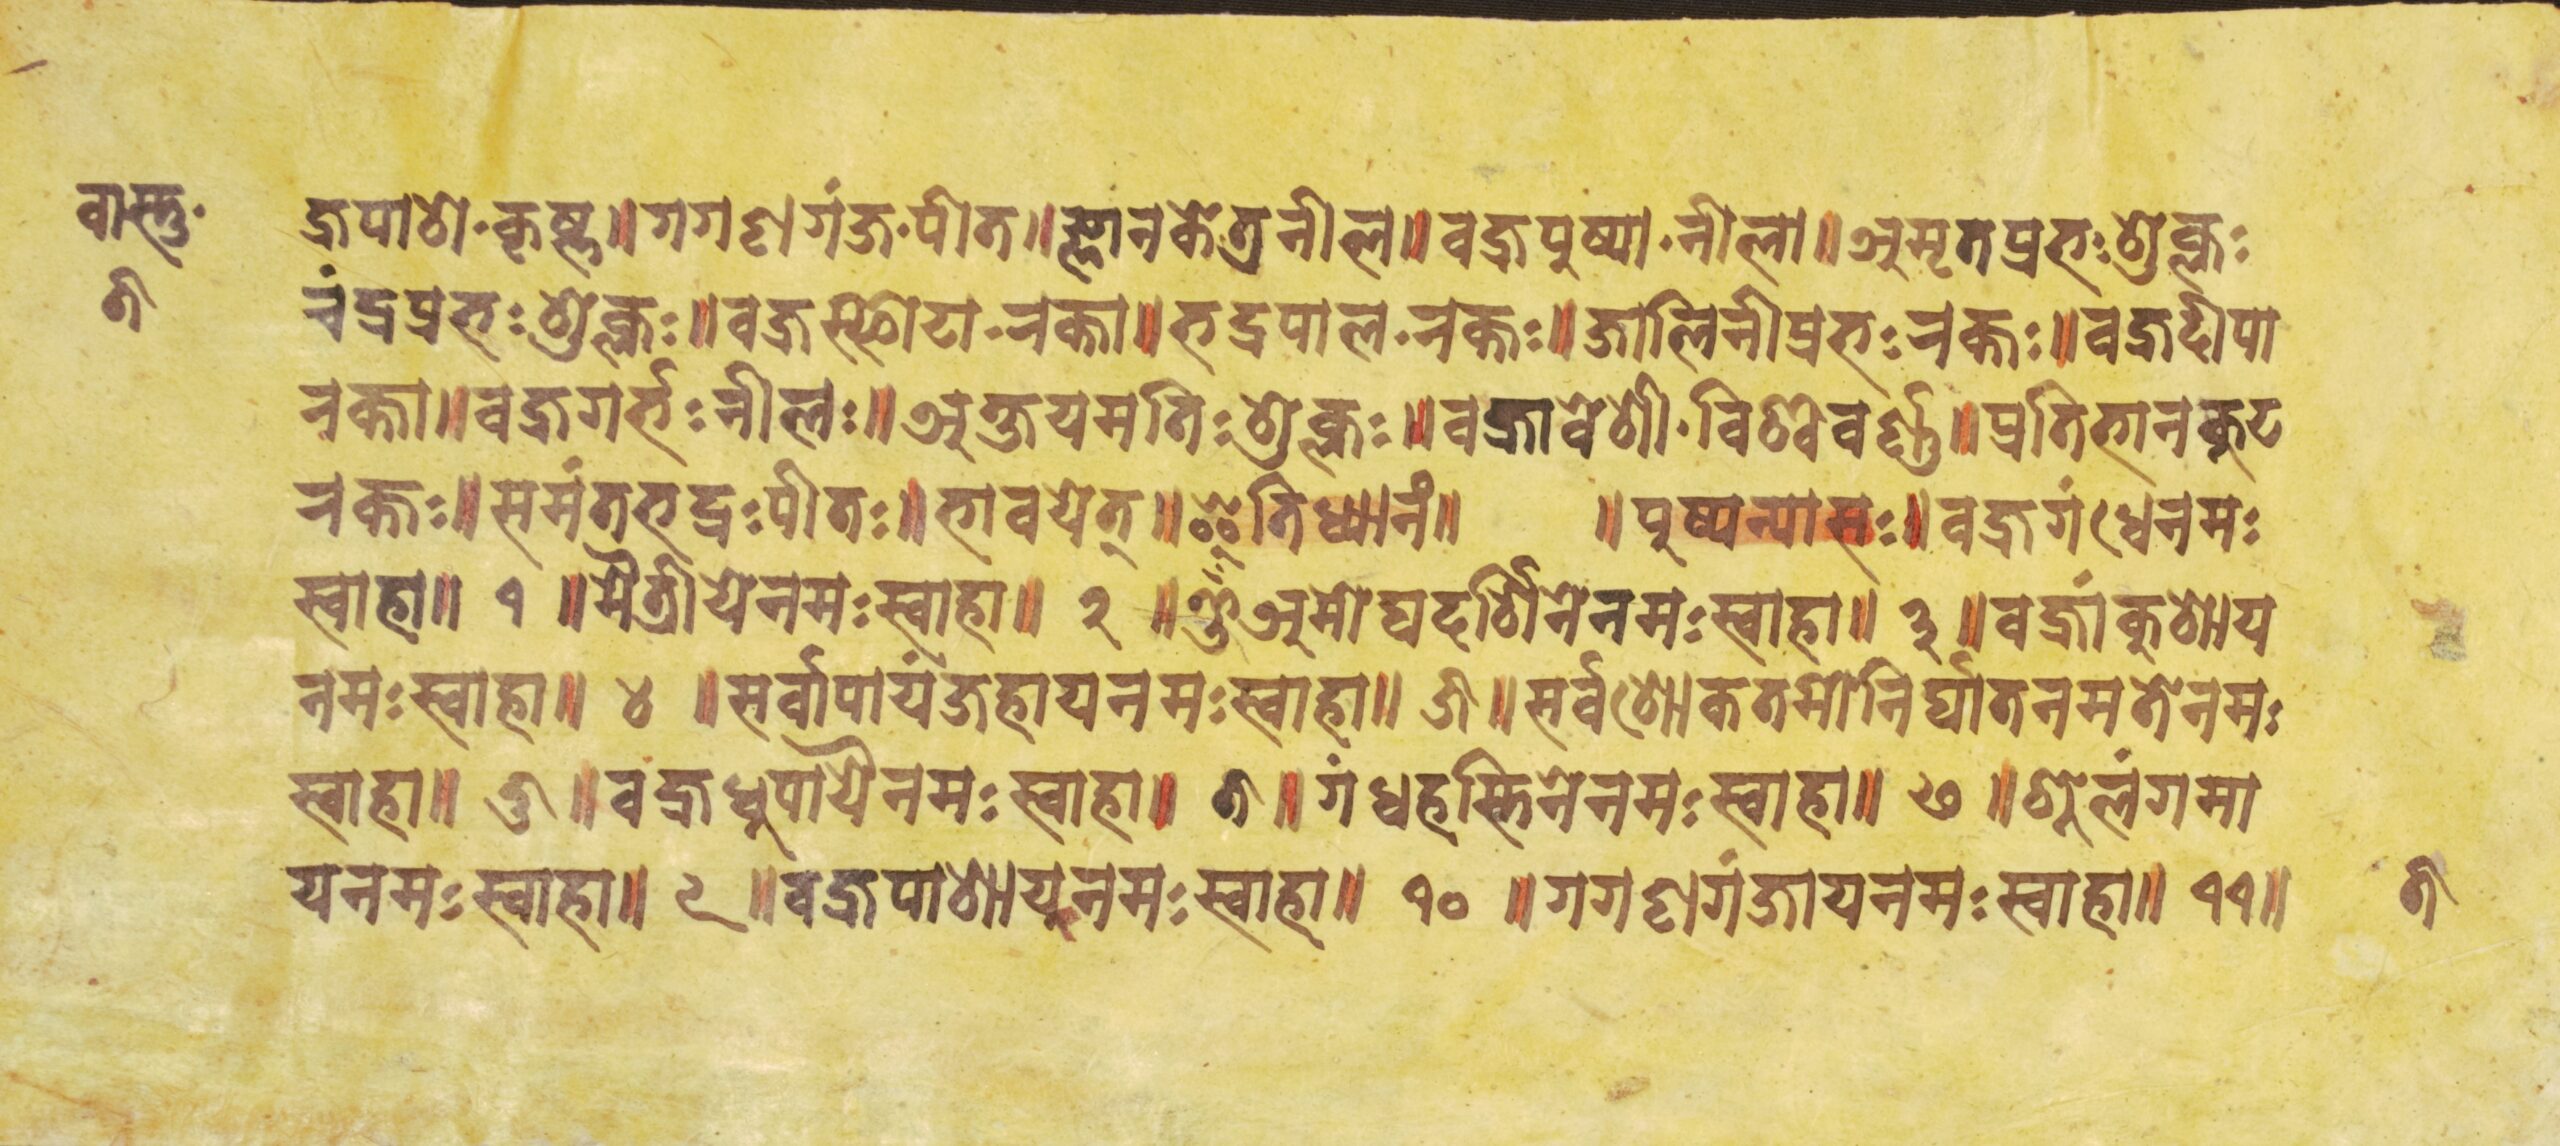 वास्तु·
७
ज्रपाशे·कृष्ण॥गगणगंज·पीत॥ज्ञानकेत्रनील॥वज्रपुष्पा·नीला॥अमृतप्रभः शुक्लः
चंद्रप्रभः शुक्लः॥वज्रस्फोटा·रक्ता॥भद्रपाल·रक्तः॥जालिनीप्रभः रक्तः॥वज्रदीपा
रक्ता॥वज्रगर्भः नीलः॥अक्षयमतिः शुक्लः॥वज्रावेशी·विश्ववर्ण्ण॥प्रतिभानकूट
रक्तः॥समंतभद्रः पीतः॥भावयेत्॥इतिध्यानं॥ ॥पुष्पन्यासः॥वज्रगंधेनमः
स्वाहा॥ १ ॥मैत्रीयेनमः स्वाहा॥ २ ॥ॐअमोघदर्शिनेनमः स्वाहा॥ ३ ॥वज्रांकुशाय
नमः स्वाहा॥ ४ ॥सर्वापायंजहायनमः स्वाहा॥ ५॥सर्वशोकतमोनिर्घातनमतेनमः
स्वाहा॥ ६॥वज्रधूपायैनमः स्वाहा॥ ७॥गंधहस्तिनेनमः स्वाहा॥ ८ ॥शूलंगमा
यनमः स्वाहा॥ ९ ॥वज्रपाशायनमः स्वाहा॥ १० ॥गगणगंजायनमः स्वाहा॥ ११॥
७